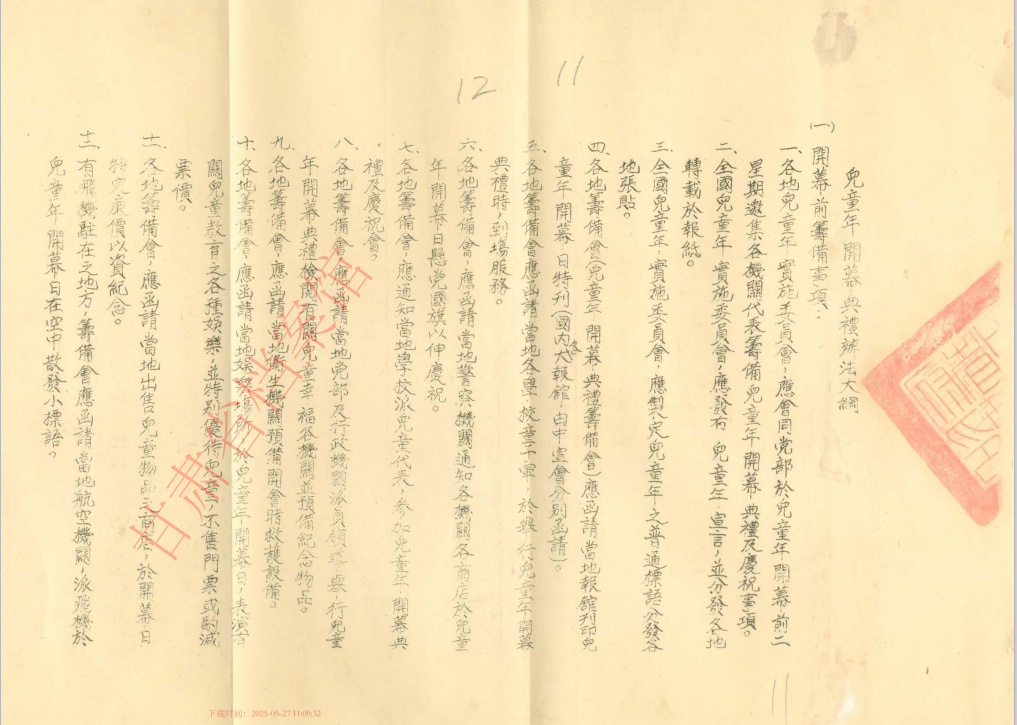 11
12
兒童年開幕典禮辦法大綱
(一)開幕前籌備事項：
一、各地兒童年實施委員會，應會同党部於兒童年開幕前二
星期邀集各機關代表籌備兒童年開幕典禮及慶祝事項。
二、全國兒童年實施委員會，應發布兒童年宣言，並分發各地
轉載於報紙。
三、全國兒童年實施委員會，應製定兒童年之普通標語分發各
地張貼。
四、各地籌備會(兒童年開幕典禮籌備會)應函請當地報館刊印兒
童年開幕日特刊(國內各大報館由中宣會分別函請)。
五、各地籌備會應函請當地各學校童子軍，於舉行兒童年開幕
典禮時，到場服務。
六、各地籌備會，應函請當地警察機關通知各機關各商店於兒童
年開幕日懸党國旗以伸慶祝。
七、各地籌備會，應通知當地學校派兒童代表，參加兒童年開幕典
禮及慶祝會。
八、各地籌備會，應函請當地党部及行政機關派員領導舉行兒童
年開幕典禮檢閱有關兒童幸福各機關並預備紀念物品。
九、各地籌備會，應函請當地衛生機關預備開會時救護設備。
十、各地籌備會，應函請當地娛樂場所，於兒童年開幕日，表演有
關兒童教育之各種娛樂，並特別優待兒童，不售門票或酌減
票價。
十一、各地籌備會，應函請當地出售兒童物品之商店，於開幕日
特定廉價以資紀念。
十二、有飛機駐在之地方，籌備會應函請當地航空機關，派飛機於
兒童年開幕日在空中散發小標語。
11
甘肃省档案馆
下载时间：2025-05-27 11:09:32